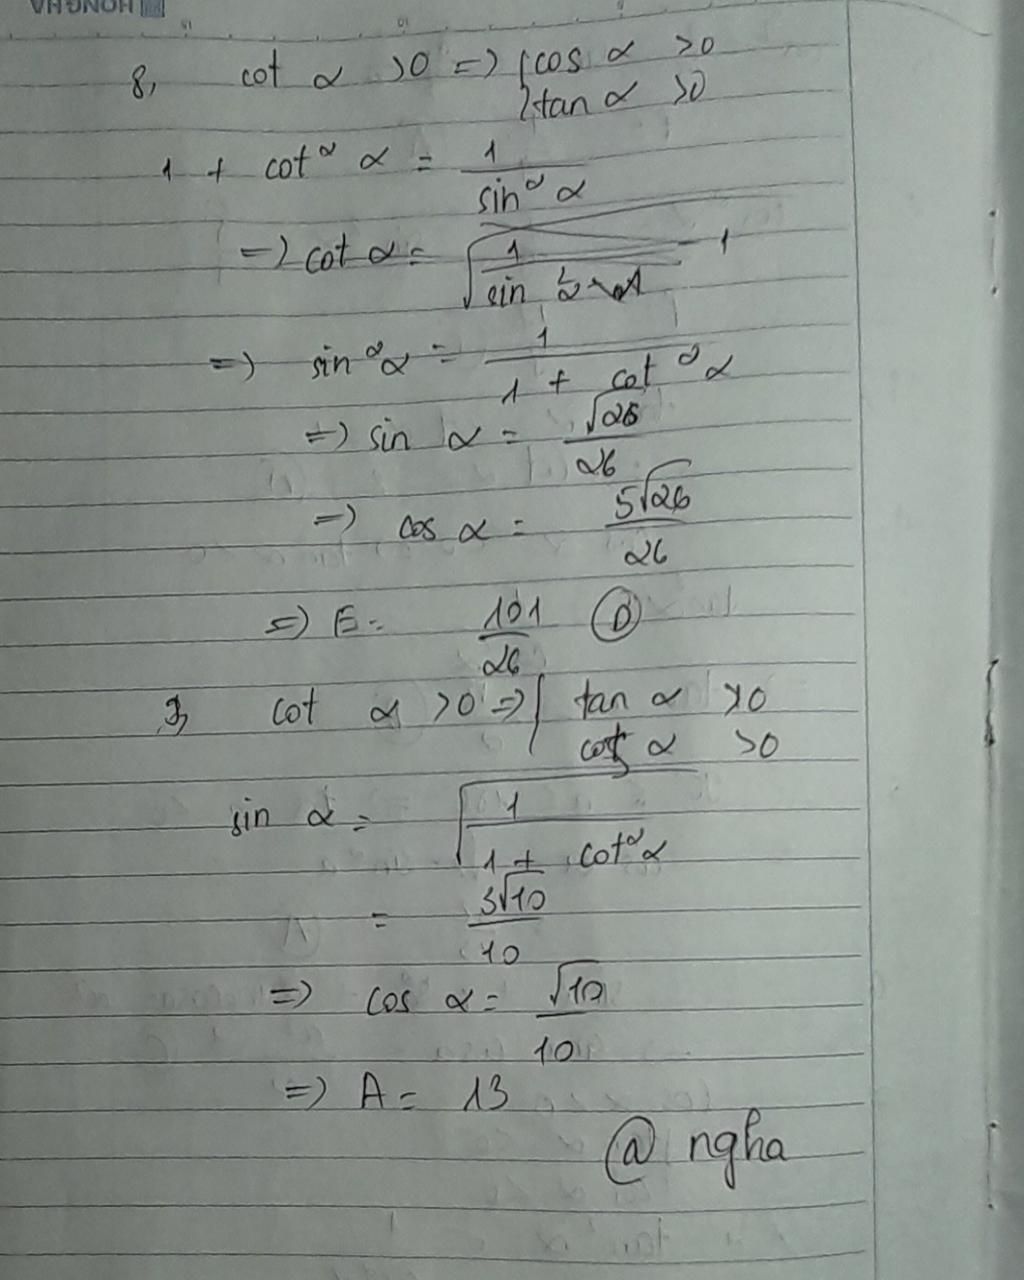 HONG HA
8, cot α >0 => { cos α >0
tan α >0
1 + cot² α = 1 / sin² α
=> cot α = √(1 / sin² α) - 1
=> sin² α = 1 / (1 + cot² α)
=> sin α = √26 / 26
=> cos α = 5√26 / 26
=> E = 101 / 26 (D)
9, cot α >0 => { tan α >0
cos α >0
sin α = √(1 / (1 + cot² α))
= 3√10 / 10
=> cos α = √10 / 10
=> A = 13
@ ngha